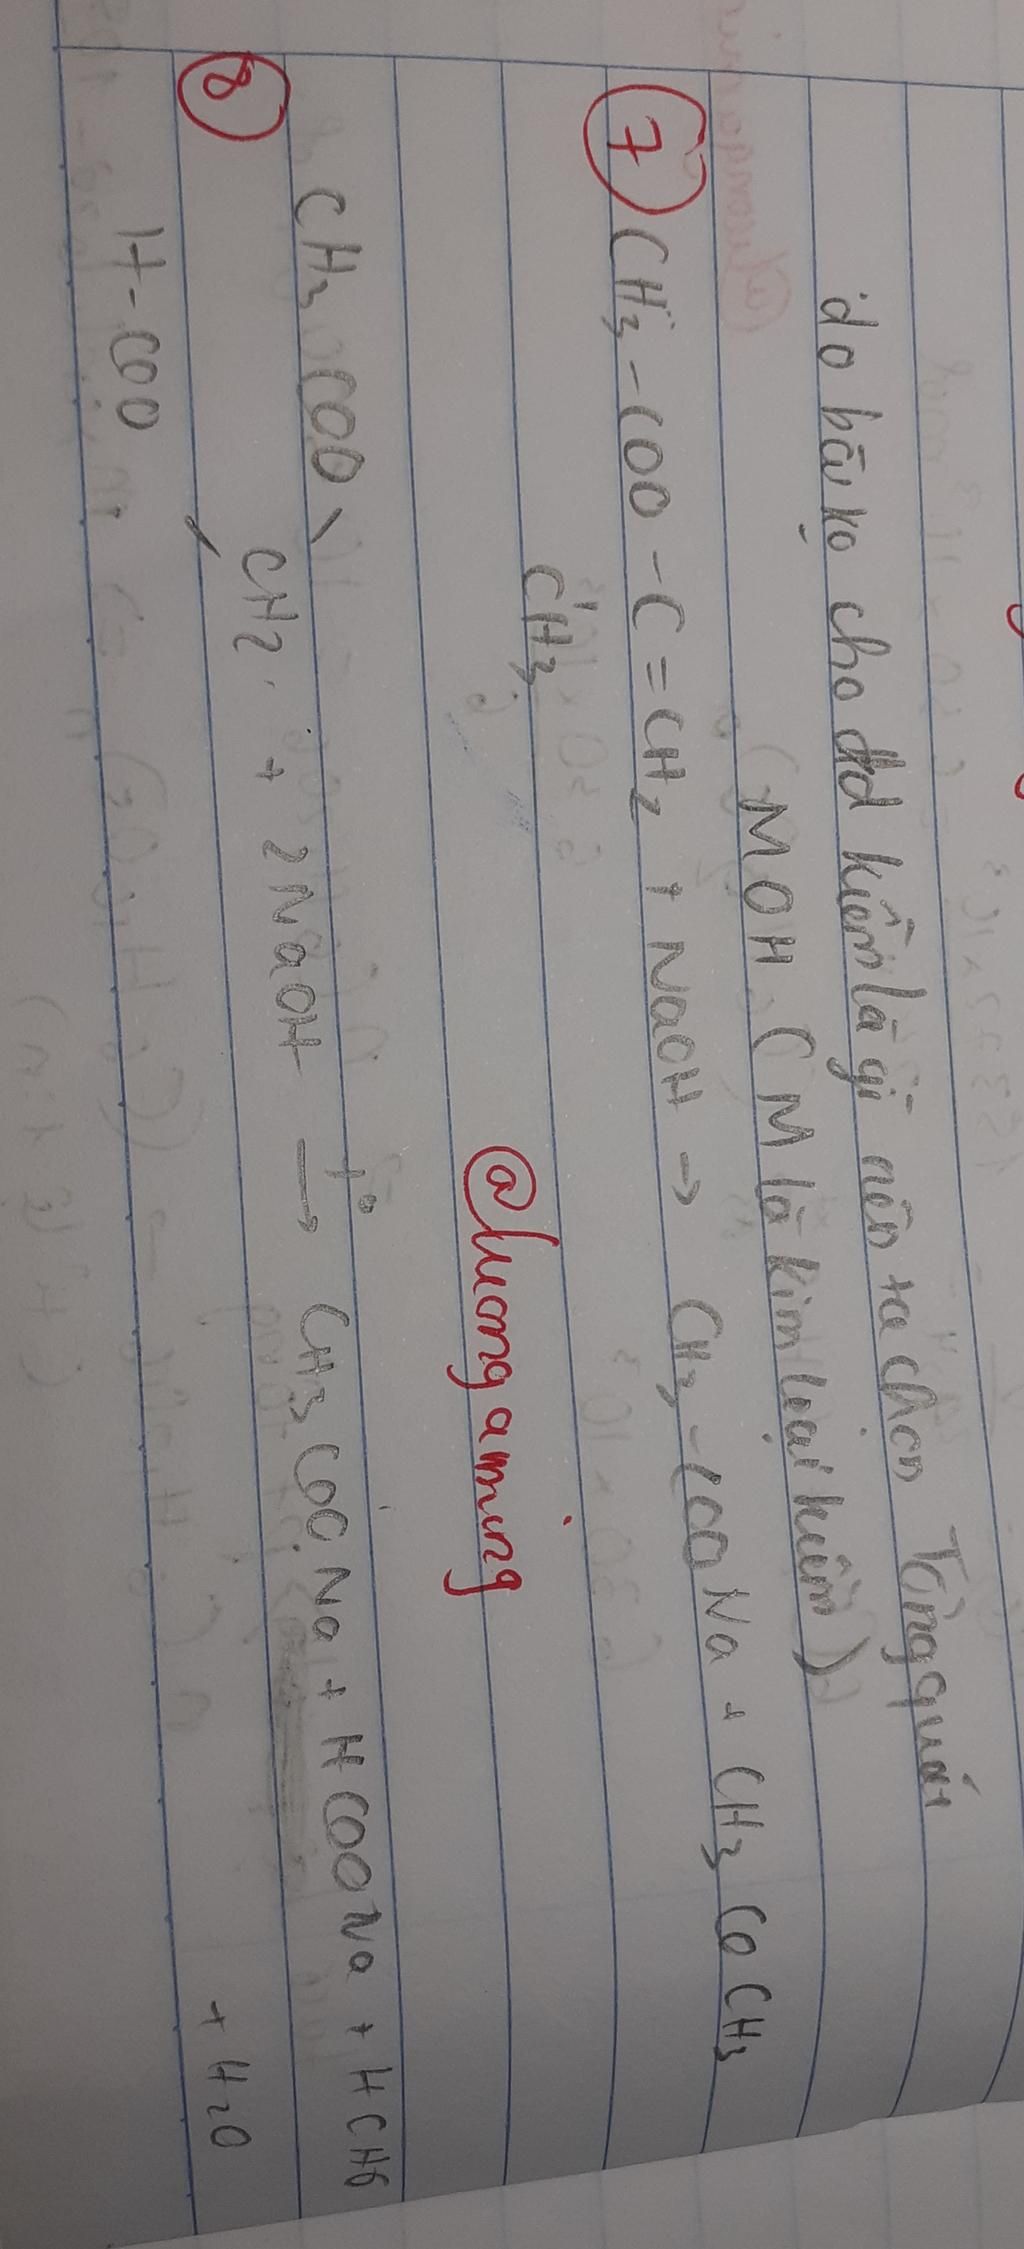 do bài ko cho dd kiềm là gì nên ta chọn Tổng quát
(MOH (M là kim loại kiềm)
⑦ CH₃-COO-C=CH₂ + NaOH → CH₃-COONa + CH₃COCH₃
CH₃
@luongaming
⑧ CH₃COO \ t°
CH₂ + 2NaOH → CH₃COONa + HCOONa + HCHO
/ + H₂O
H-COO